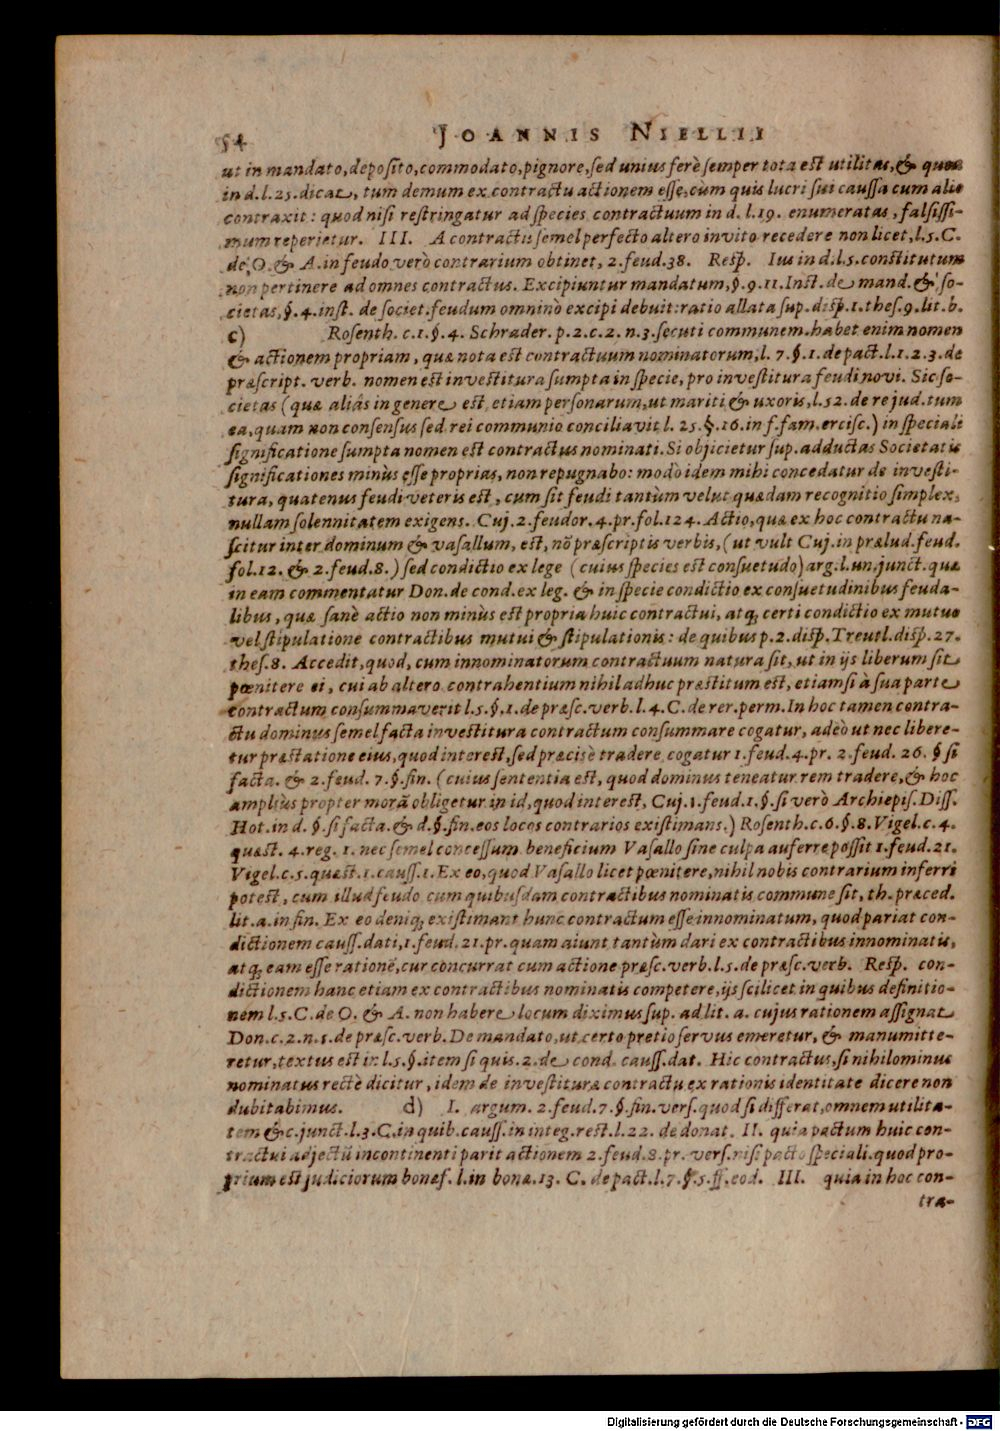 54 JOANNIS NIELLII
ut in mandato, deposito, commodato, pignore, sed unius ferè semper tota est utilitas, & quod
in d. l. 25. dicat, tum demum ex contractu actionem esse, cùm quis lucri sui caussa cum alio
contraxit: quod nisi restringatur ad species contractuum in d. l. 19. enumeratas, falsissi-
mum reperietur. III. A contractu semel perfecto altero invito recedere non licet, l. 5. C.
de O. & A. in feudo verò contrarium obtinet, 2. feud. 38. Resp. Ius in d. l. 5. constitutum
non pertinere ad omnes contractus. Excipiuntur mandatum, §. 9. 11. Inst. de mand. & so-
cietas, §. 4. inst. de societ. feudum omninò excipi debuit: ratio allata sup. disp. 1. thes. 9. lit. b.
c) Rosenth. c. 1. §. 4. Schrader. p. 2. c. 2. n. 3. secuti communem. habet enim nomen
& actionem propriam, quæ nota est contractuum nominatorum, l. 7. §. 1. de pact. l. 1. 2. 3. de
præscript. verb. nomen est investitura sumpta in specie, pro investitura feudi novi. Sic so-
cietas (quæ aliás in genere est etiam personarum, ut mariti & uxoris, l. 52. de re jud. tum
ea, quam non consensus sed rei communio conciliavit l. 25. §. 16. in f. fam. ercisc.) in speciali
significatione sumpta nomen est contractus nominati. Si objicietur sup. adductas Societatis
significationes minùs esse proprias, non repugnabo: modò idem mihi concedatur de investi-
tura, quatenus feudi veteris est, cum sit feudi tantùm velut quædam recognitio simplex,
nullam solennitatem exigens. Cuj. 2. feudor. 4. pr. fol. 124. Actio, quæ ex hoc contractu na-
scitur inter dominum & vasallum, est, nõ præscriptis verbis, (ut vult Cuj. in prælud. feud.
fol. 12. & 2. feud. 8.) sed condictio ex lege (cuius species est consuetudo) arg. l. un. junct. quæ
in eam commentatur Don. de cond. ex leg. & in specie condictio ex consuetudinibus feuda-
libus, quæ sanè actio non minùs est propria huic contractui, atq; certi condictio ex mutuo
vel stipulatione contractibus mutui & stipulationis: de quibus p. 2. disp. Treutl. disp. 27.
thes. 8. Accedit, quod, cum innominatorum contractuum natura sit, ut in ijs liberum sit
pœnitere ei, cui ab altero contrahentium nihil adhuc præstitum est, etiamsi à sua parte
contractum consummaverit l. 5. §. 1. de præsc. verb. l. 4. C. de rer. perm. In hoc tamen contra-
ctu dominus semel facta investitura contractum consummare cogatur, adeò ut nec libere-
tur præstatione eius, quod interest, sed præcisè tradere cogatur 1. feud. 4. pr. 2. feud. 26. § si
facta. & 2. feud. 7. §. fin. (cuius sententia est, quod dominus teneatur rem tradere, & hoc
ampliùs propter morã obligetur in id, quod interest, Cuj. 1. feud. 1. §. si verò Archiepis. Diss.
Hot. in d. §. si facta. & d. §. fin. eos locos contrarios existimans.) Rosenth. c. 6. §. 8. Vigel. c. 4.
quæst. 4. reg. 1. nec semel concessum beneficium Vasallo sine culpa auferre possit 1. feud. 21.
Vigel. c. 5. quæst. 1. causs. 1. Ex eo, quod Vasallo licet pœnitere, nihil nobis contrarium inferri
potest, cum illud feudo cum quibusdam contractibus nominatis commune sit, th. præced.
lit. a. in fin. Ex eo deniq; existimant hunc contractum esse innominatum, quod pariat con-
dictionem causs. dati, 1. feud. 21. pr. quam aiunt tantùm dari ex contractibus innominatis,
atq; eam esse rationẽ, cur concurrat cum actione præsc. verb. l. 5. de præsc. verb. Resp. con-
dictionem hanc etiam ex contractibus nominatis competere, ijs scilicet in quibus definitio-
nem l. 5. C. de O. & A. non habere locum diximus sup. ad lit. a. cujus rationem assignat
Don. c. 2. n. 1. de præsc. verb. De mandato, ut certo pretio servus emeretur, & manumitte-
retur, textus est in l. 5. §. item si quis. 2. de cond. causs. dat. Hic contractus, si nihilominus
nominatus rectè dicitur, idem de investituræ contractu ex rationis identitate dicere non
dubitabimus. d) I. argum. 2. feud. 7. §. fin. vers. quod si differat, omnem utilita-
tem &c. junct. l. 3. C. in quib. causs. in integ. rest. l. 22. de donat. II. quia pactum huic con-
tractui adjectũ incontinenti parit actionem 2. feud. 8. pr. vers. nisi pacto speciali. quod pro-
prium est judiciorum bonæf. l. in bonæ. 13. C. de pact. l. 7. §. 5. ff. eod. III. quia in hoc con-
tra-
Digitalisierung gefördert durch die Deutsche Forschungsgemeinschaft - DFG